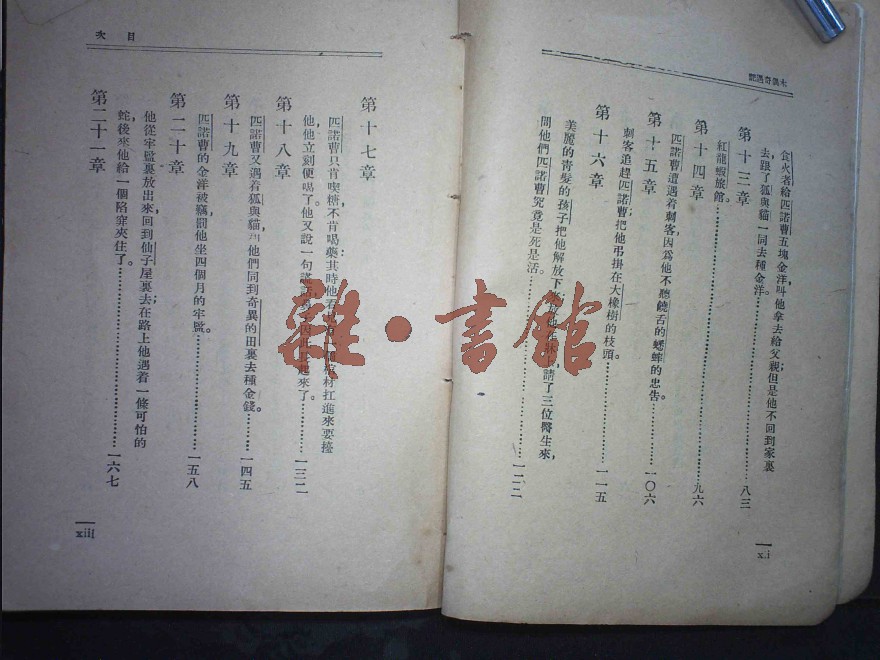 木偶奇遇記
食火者給匹諾曹五塊金洋，叫他拿去給父親；但是他不回到家裏
去，跟了狐與貓一同去種金洋。……八三
第十三章
紅龍蝦旅館。……九六
第十四章
匹諾曹遭遇着刺客，因爲他不聽饒舌的蟋蟀的忠告。……一〇六
第十五章
刺客追趕匹諾曹，把他弔掛在大橡樹的枝頭。……一一五
第十六章
美麗的青髮的孩子把他解放下 請了三位醫生來，
問他們匹諾曹究竟是死是活。……一二二
xi
目次
第十七章
匹諾曹只肯喫糖，不肯喝藥；其時他 材扛進來要擡
他，他立刻便喝了。他又說一句謊話， 起來了。……一三二
第十八章
匹諾曹又遇着狐與貓， 他們同到奇異的田裏去種金錢。……一四五
第十九章
匹諾曹的金洋被竊，罰他坐四個月的牢監。……一五八
第二十章
他從牢監裏放出來，回到仙子屋裏去；在路上他遇着一條可怕的
蛇，後來他給一個陷穽夾住了。……一六七
第二十一章
xiii
雜·書館